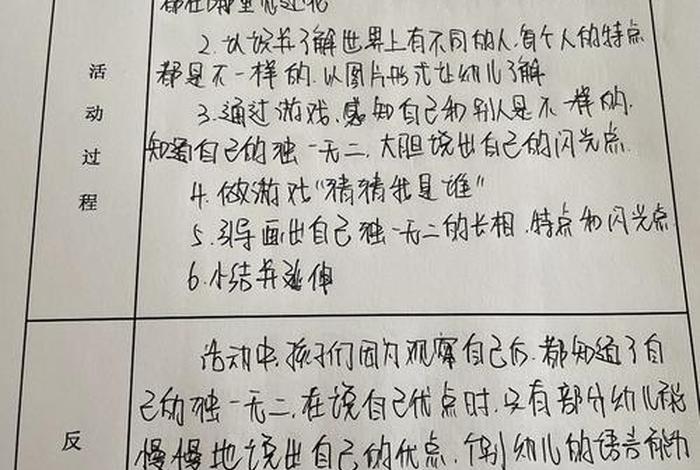 2.认识并了解世界上有不同的人,每个人的特点
都是不一样的,以图片形式让幼儿了解
3.通过游戏,感知自己和别人是不一样的,
知道自己的独一无二,大胆说出自己的闪光点.
4.做游戏"猜猜我是谁"
5.引导画出自己独一无二的长相,特点和闪光点
6.小结并延伸
活动过程
活动中,孩子们因为观察自己后,都知道了自
己的独一无二,在说自己优点时,只有部分幼儿能
慢慢地说出自己的优点,个别幼儿的语言能力
反